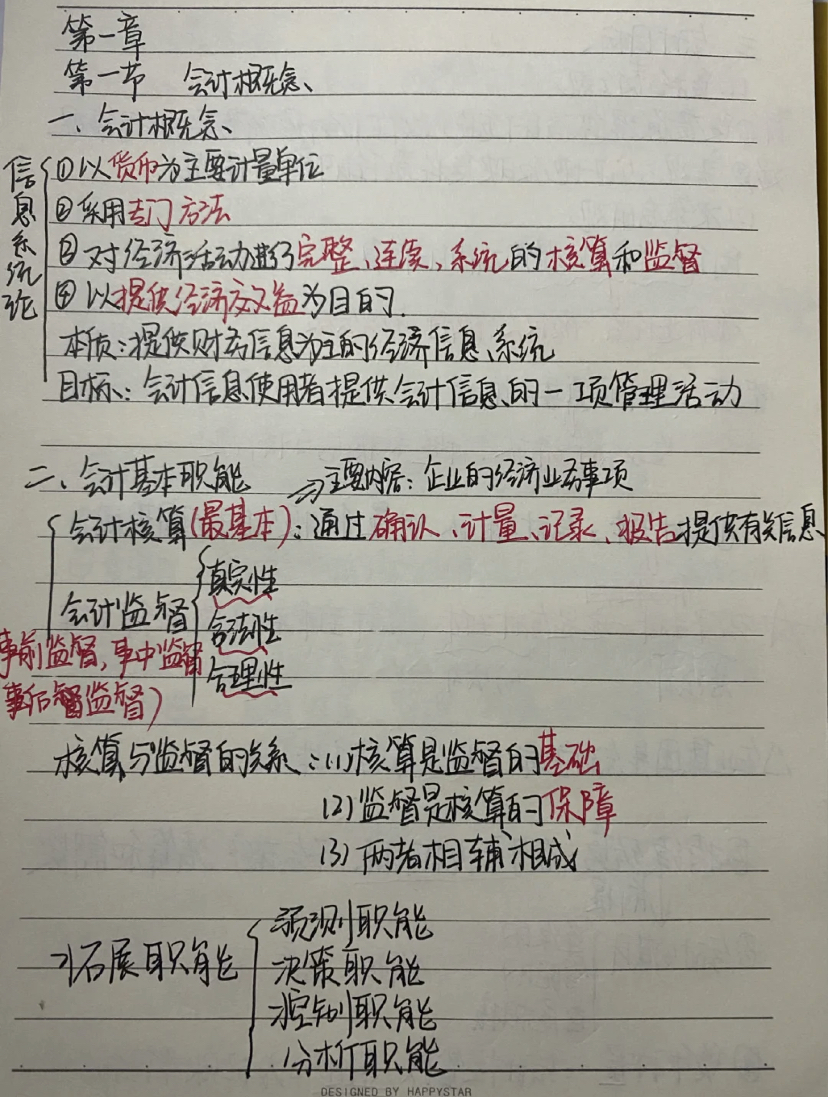 第一章
第一节 会计概念、
一、会计概念、
信息系统论
①以货币为主要计量单位
②采用专门方法
③对经济活动进行完整、连续、系统的核算和监督
④以提供经济效益为目的.
本质:提供财务信息为主的经济信息系统
目标:会计信息使用者提供会计信息的一项管理活动
二、会计基本职能 ⇒主要内容:企业的经济业务事项
会计核算(最基本):通过确认、计量、记录、报告提供有关信息
真实性
会计监督 合法性
事前监督,事中监督 合理性
事后监督)
核算与监督的关系:(1)核算是监督的基础
(2)监督是核算的保障
(3)两者相辅相成
预测职能
拓展职能 决策职能
控制职能
分析职能
DESIGNED BY HAPPYSTAR